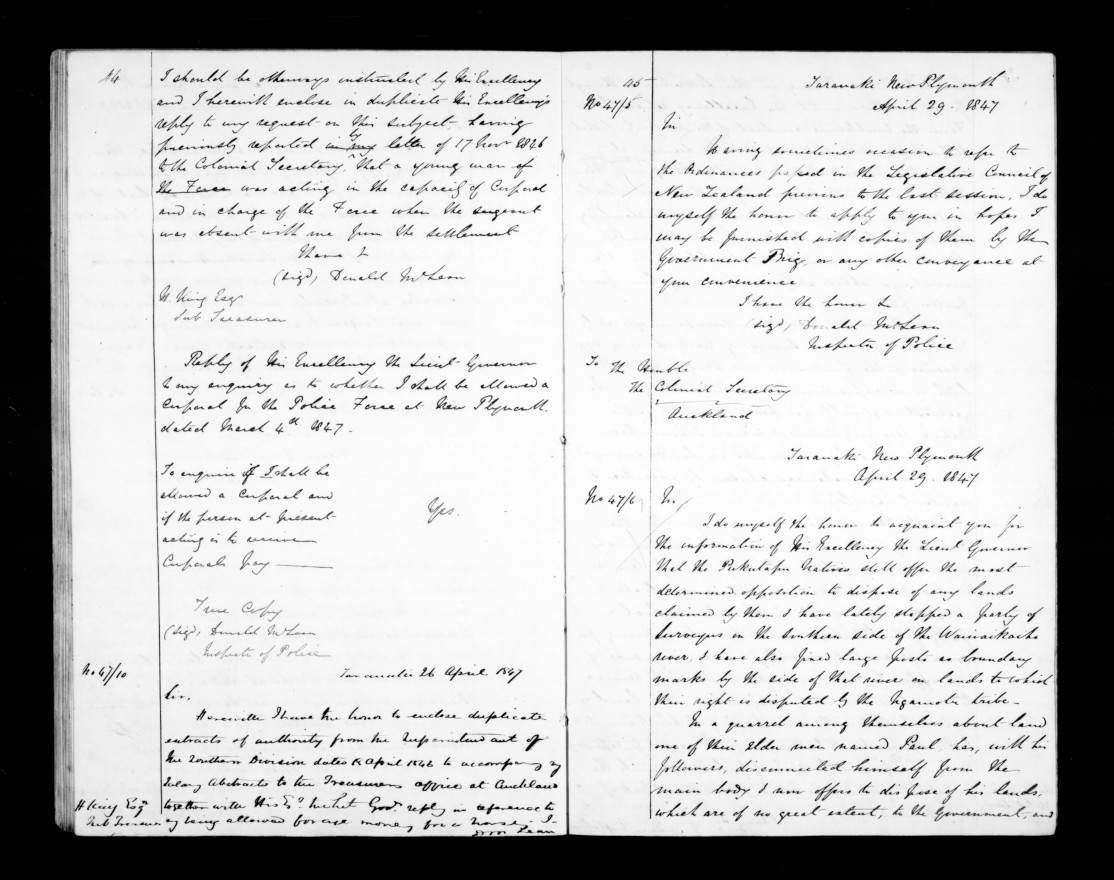 44
I should be otherways instructed by His Excellency
and I herewith enclose in duplicate His Excellency's
reply to my request on this subject. Having
previously reported in my by letter of 17 Novr 1846
to the Colonial Secretary, that a young man of
the Force was acting in the capacity of Corporal
and in charge of the Force when the sergeant
was absent with me from the settlement
I have &
(sigd) Donald McLean
H. King Esqr
Sub Treasurer
Reply of His Excellency the Lieut Governor
to my enquiry as to whether I shall be allowed a
Corporal for the Police Force at New Plymouth.
dated March 4th 1847.
To enquire if I shall be
allowed a Corporal and
if the person at present
acting is to receive
Corporals pay
Yes.
True Copy
(sigd) Donald McLean
Inspector of Police
No 47/10
Taranaki 26 April 1847
Sir,
Herewith I have the honor to enclose duplicate
extracts of authority from the Superintendent of
the Southern Division dated April 1846 to accompany my
Salary Abstracts to the Treasurers office at Auckland
together with His Ex. Lieut Govr reply in reference to
my being allowed forage money for a horse. I
H King Esqr
Sub Treasurer
45
Taranaki New Plymouth
April 29. 1847
No 47/5
Sir
Having sometimes occasion to refer to
the Ordinances passed in the Legislative Council of
New Zealand previous to the last session, I do
myself the honor to apply to you in hopes I
may be furnished with copies of them by the
Government Brig, or any other conveyance at
your convenience
I have the honor &c
(sigd) Donald McLean
Inspector of Police
To The Honble
The Colonial Secretary
Auckland
Taranaki New Plymouth
April 29. 1847
No 47/6
Sir/
I do myself the honor to acquaint you for
the information of His Excellency the Lieut Governor
that the Puketapu Natives still offer the most
determined opposition to dispose of any lands
claimed by them & have lately stopped a party of
Surveyors on the Southern side of the Waiwaikaiho
river, & have also fixed large posts as boundary
marks by the side of that river on lands to which
their right is disputed by the Ngamotu tribe.
In a quarrel among themselves about land
one of their elder men named Paul has, with his
followers, disconnected himself from the
main body & now offers to dispose of his lands,
which are of no great extent, to the Government, and